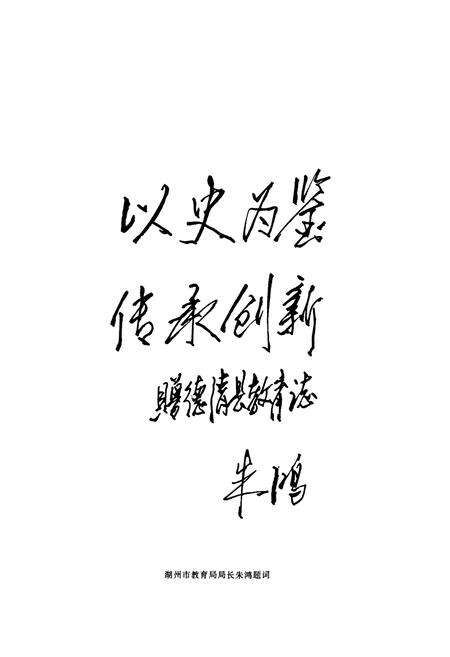 以史为鉴
传承创新
贈德清县教育志
朱鸿
湖州市教育局局长朱鸿题词